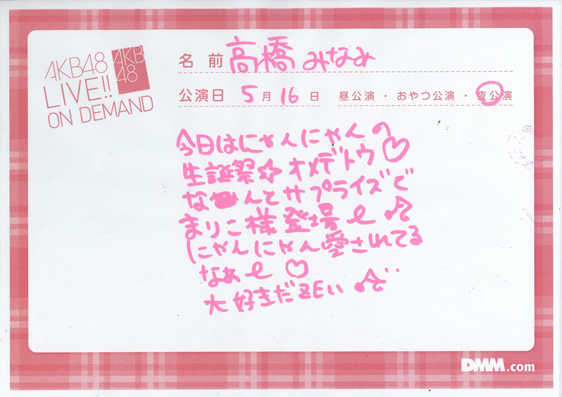 AKB48
AKB
48
LIVE!!
ON DEMAND
名前 高橋みなみ
公演日 5月16日 昼公演・おやつ公演・夜公演
今日はにゃんにゃんの
生誕祭☆オメデトウ♡
なんとサプライズで
まりこ様登場〜♪
にゃんにゃん愛されてる
なぁ〜♡
大好きだZEぃ♪
DMM.com